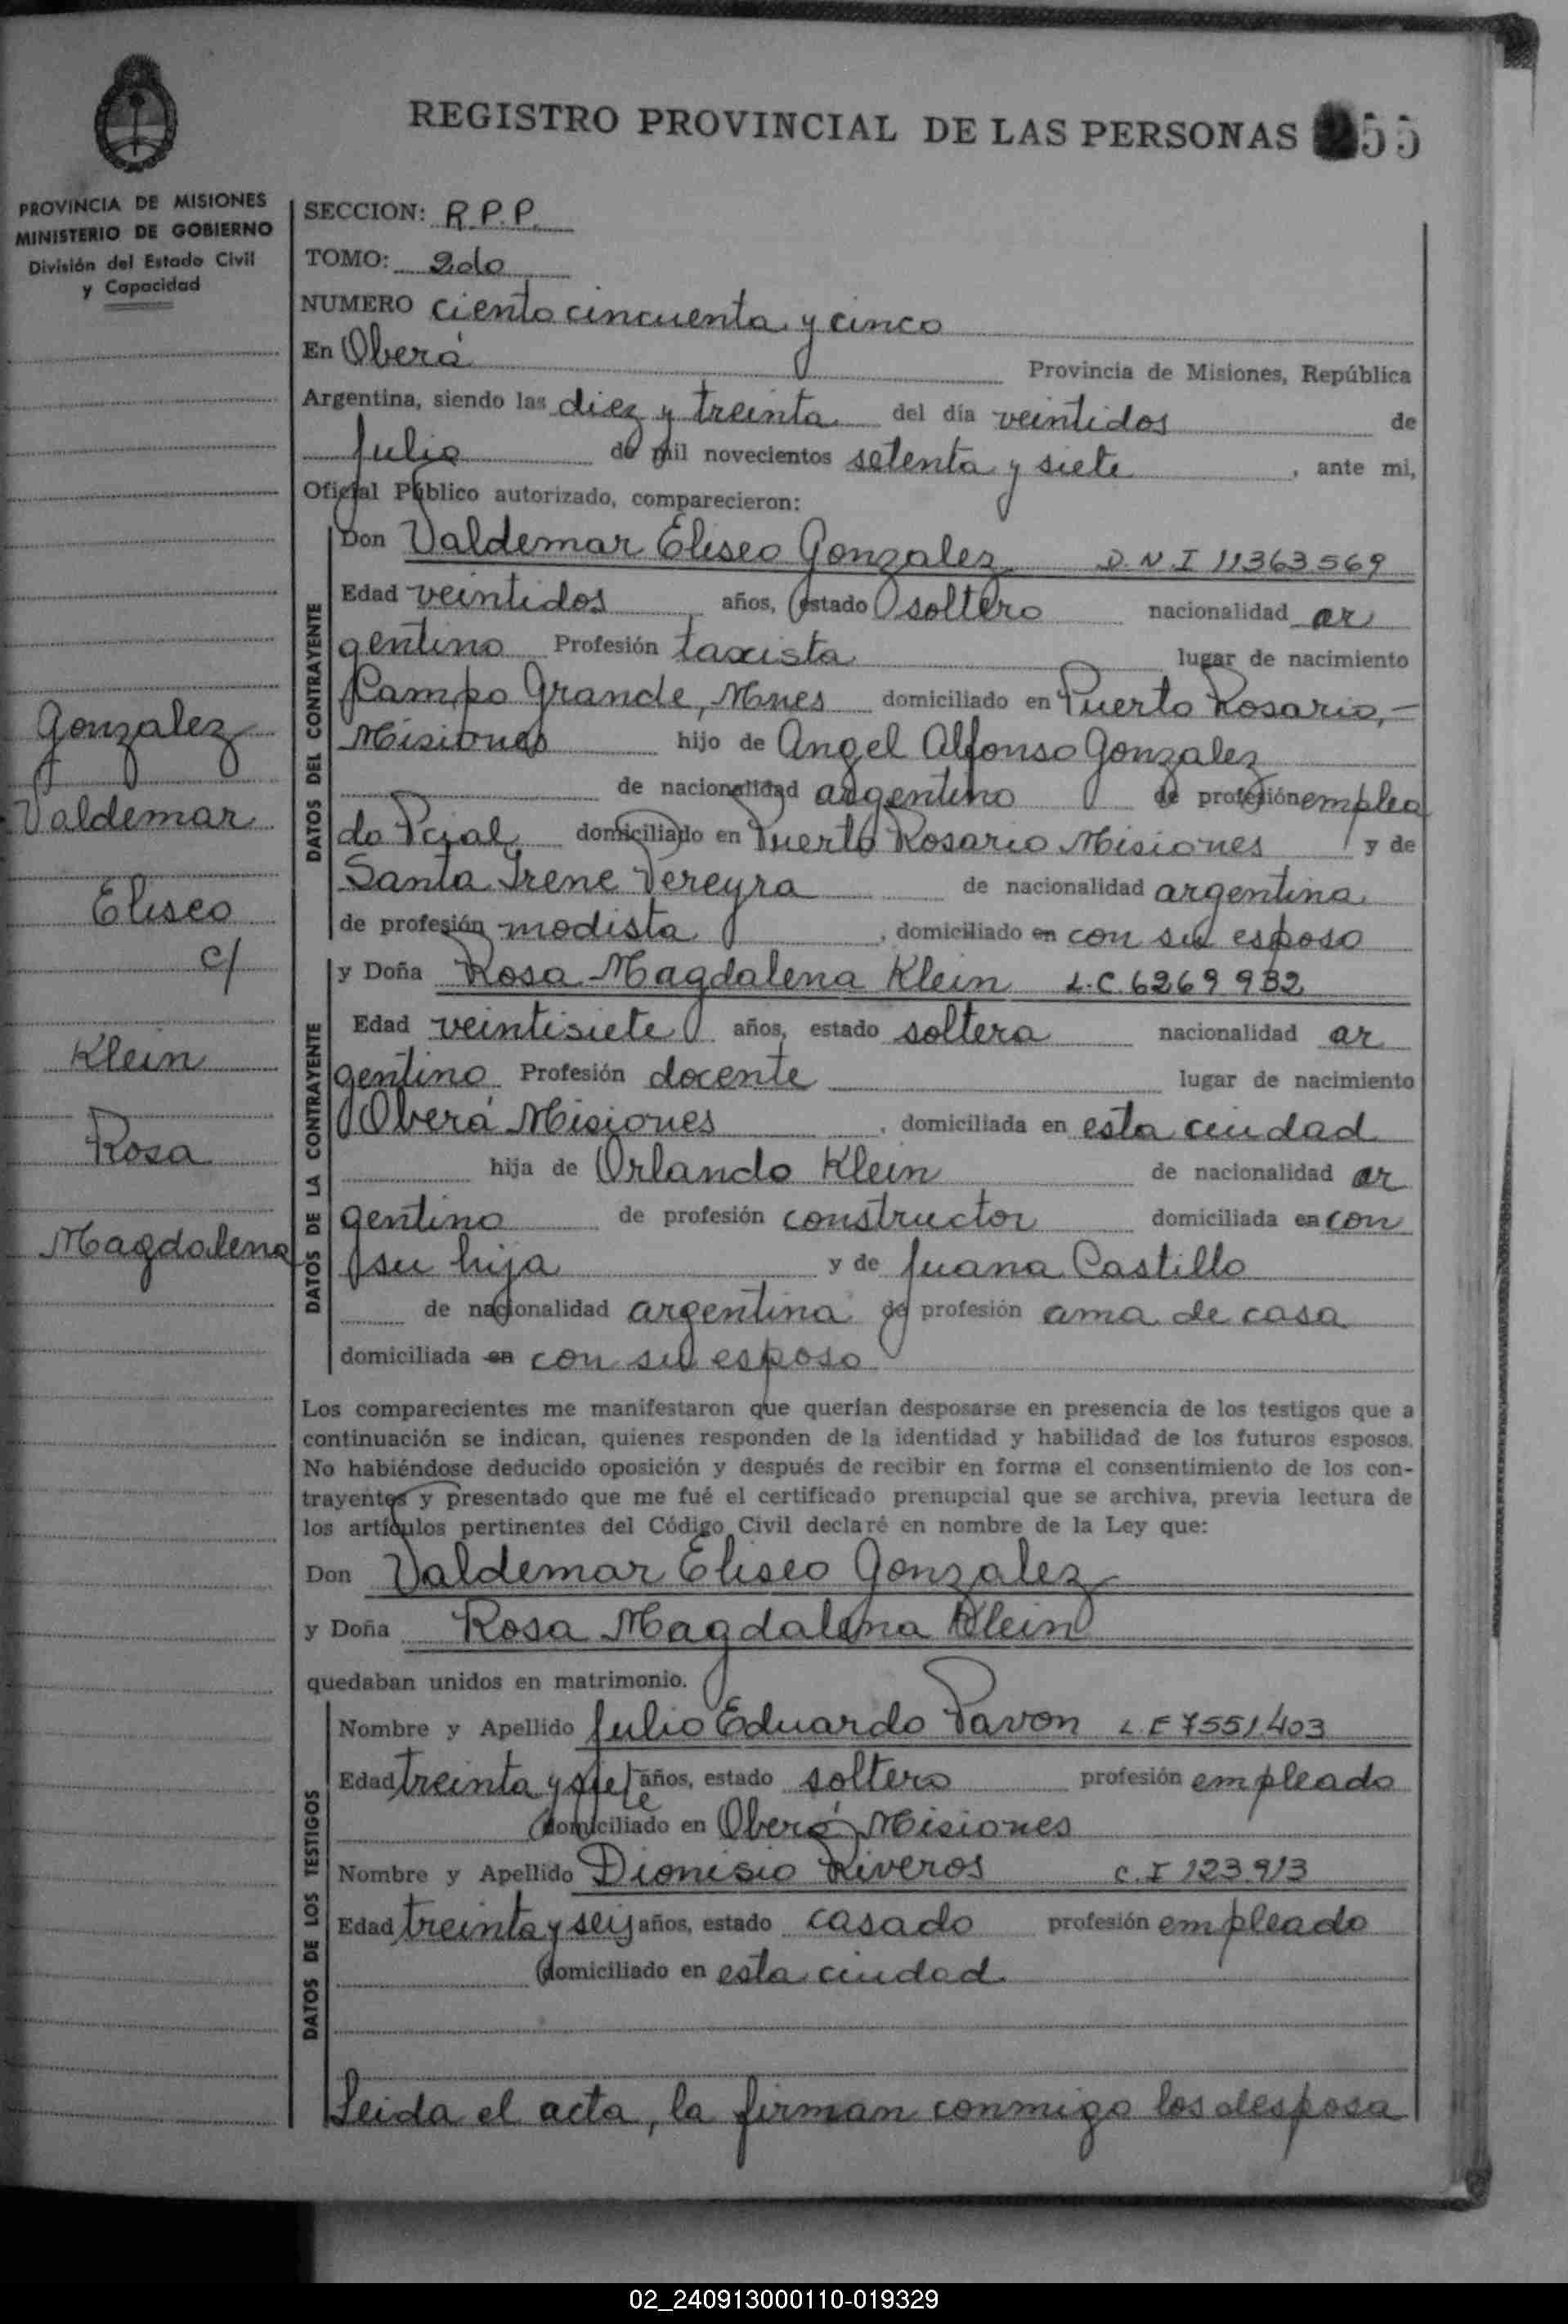 REGISTRO PROVINCIAL DE LAS PERSONAS 55
PROVINCIA DE MISIONES
MINISTERIO DE GOBIERNO
División del Estado Civil
y Capacidad
Gonzalez
Valdemar
Eliseo
c/
Klein
Rosa
Magdalena
SECCION: R.P.P.
TOMO: 2do
NUMERO ciento cincuenta y cinco
En Oberá Provincia de Misiones, República
Argentina, siendo las diez y treinta del día veintidos de
Julio de mil novecientos setenta y siete, ante mi,
Oficial Público autorizado, comparecieron:
DATOS DEL CONTRAYENTE
Don Valdemar Eliseo Gonzalez D.N.I 11363569
Edad veintidos años, estado soltero nacionalidad ar
gentino Profesión taxista lugar de nacimiento
Campo Grande, Mnes domiciliado en Puerto Rosario,-
Misiones hijo de Angel Alfonso Gonzalez
de nacionalidad argentino de profesión emplea
do Pcial domiciliado en Puerto Rosario Misiones y de
Santa Irene Pereyra de nacionalidad argentina
de profesión modista, domiciliado en con su esposo
DATOS DE LA CONTRAYENTE
y Doña Rosa Magdalena Klein L.C. 6269932
Edad veintisiete años, estado soltera nacionalidad ar
gentino Profesión docente lugar de nacimiento
Oberá Misiones, domiciliada en esta ciudad
hija de Orlando Klein de nacionalidad ar
gentino de profesión constructor domiciliada en con
su hija y de Juana Castillo
de nacionalidad argentina de profesión ama de casa
domiciliada en con su esposo
Los comparecientes me manifestaron que querían desposarse en presencia de los testigos que a
continuación se indican, quienes responden de la identidad y habilidad de los futuros esposos.
No habiéndose deducido oposición y después de recibir en forma el consentimiento de los con-
trayentes y presentado que me fué el certificado prenupcial que se archiva, previa lectura de
los artículos pertinentes del Código Civil declaré en nombre de la Ley que:
Don Valdemar Eliseo Gonzalez
y Doña Rosa Magdalena Klein
quedaban unidos en matrimonio.
DATOS DE LOS TESTIGOS
Nombre y Apellido Julio Eduardo Pavon L.E 7551403
Edad treinta y siete años, estado soltero profesión empleado
domiciliado en Oberá Misiones
Nombre y Apellido Dionisio Riveros C.I 123.913
Edad treinta y seis años, estado casado profesión empleado
domiciliado en esta ciudad
Leida el acta, la firman conmigo los desposa
02_240913000110-019329